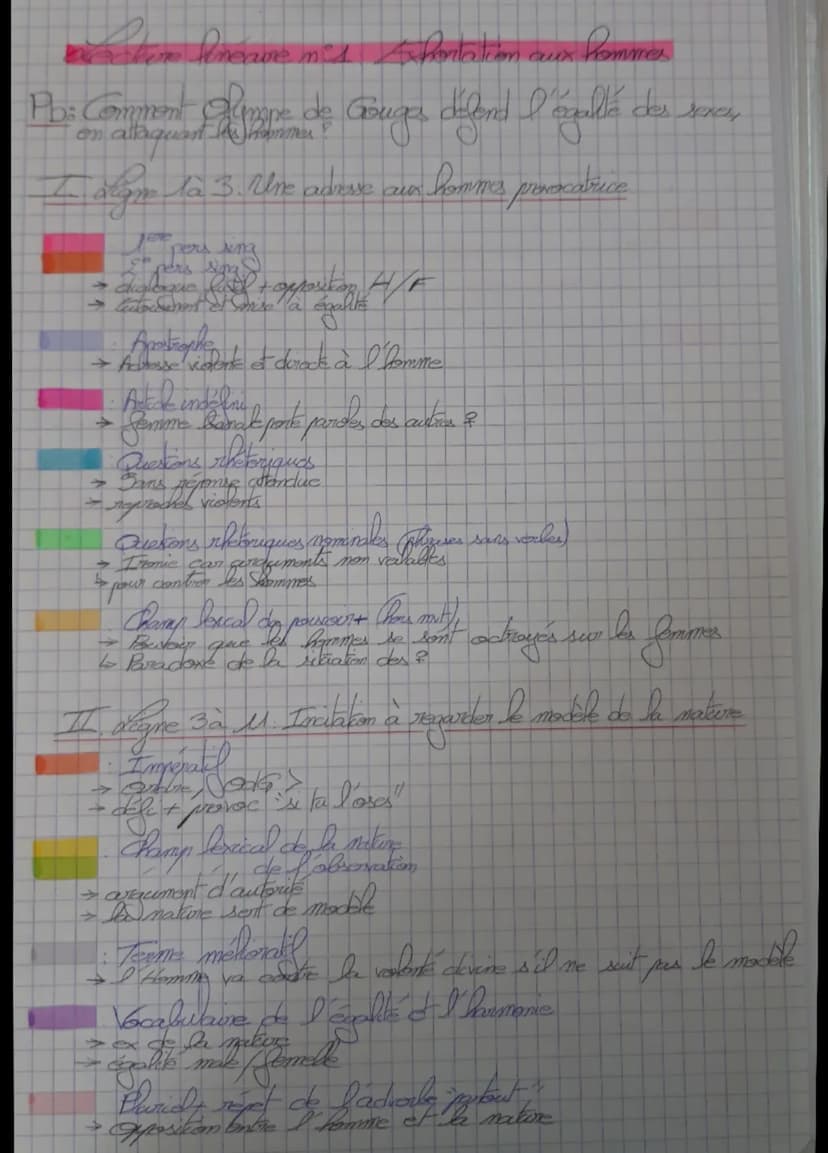 Lecture linéaire n°1 Exhortation aux hommes
Pb: Comment Olympe de Gouges défend l'égalité des sexes,
en attaquant les hommes?
I. Ligne 1 à 3. Une adresse aux hommes provocatrice
1ère pers sing
2e pers sing
→ dialogue + opposition H/F
→ et mise à égalité
: Apostrophe
→ Adresse violente et directe à l'homme
: Article indéfini
→ femme banale porte paroles des autres ?
: Questions rhétoriques
→ Sans réponse attendue
→ reproches violents
: Questions rhétoriques nominales (phrases sans verbes)
→ Ironie car arguments non valables
↳ pour contrer les hommes
: Champ lexical du pouvoir+
→ Pouvoir que les hommes se sont octroyés sur les femmes
↳ Paradoxe de la situation des ?
II. Ligne 3 à 11. Incitation à regarder le modèle de la nature
: Impératif
→ ordre,
→ défi + provoc "si tu l'oses"
: Champ lexical de la nature
de l'observation
→ argument d'autorité
→ la nature sert de modèle
: Terme mélioratif
→ l'Homme va contre la volonté divine s'il ne suit pas le modèle
: Vocabulaire de l'égalité et l'harmonie
→ ex de la nature
→ égalité male/femelle
: Pluriel + répét de l'adverbe "partout"
→ opposition entre l'homme et la nature